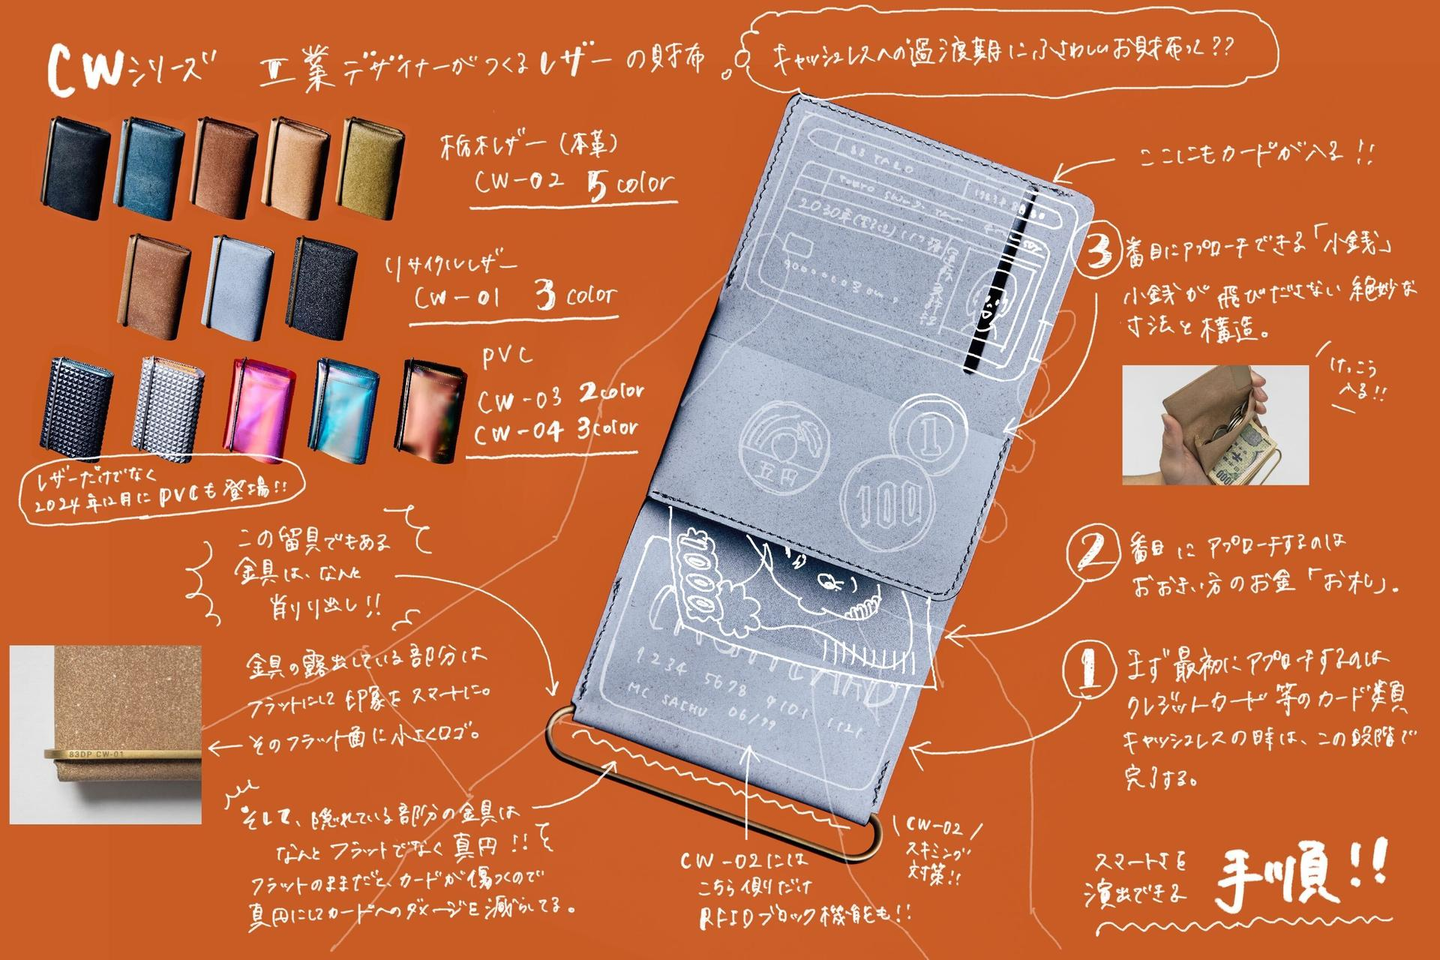 CWシリーズ 工業デザイナーがつくるレザーの財布
キャッシュレスへの過渡期にふさわしいお財布って??
栃木レザー(本革)
CW-02 5 color
リサイクルレザー
CW-01 3 color
PVC
CW-03 2color
CW-04 3color
レザーだけでなく
2024年12月にPVCも登場!!
この留具でもある
金具は、なんと
削り出し!!
金具の露出している部分は
フラットにして印象をスマートに。
そのフラット面に小さくロゴ。
83DP CW-01
そして、隠れている部分の金具は
なんとフラットでなく真円!!
フラットのままだと、カードが傷つくので
真円にしてカードへのダメージを減らしてる。
ここにもカードが入る!!
3番目にアプローチできる「小銭」
小銭が飛びださない絶妙な
寸法と構造。
けっこう
入る!!
2番目にアプローチするのは
おおきい方のお金「お札」。
1まず最初にアプローチするのは
クレジットカード等のカード類
キャッシュレスの時は、この段階で
完了する。
五円
1
100
10000
1234 5678 9101 1121
MC SACHU 06/99
CW-02
スキミング
対策!!
CW-02には
こちら側だけ
RFIDブロック機能も!!
スマートさを
演出できる
手順!!